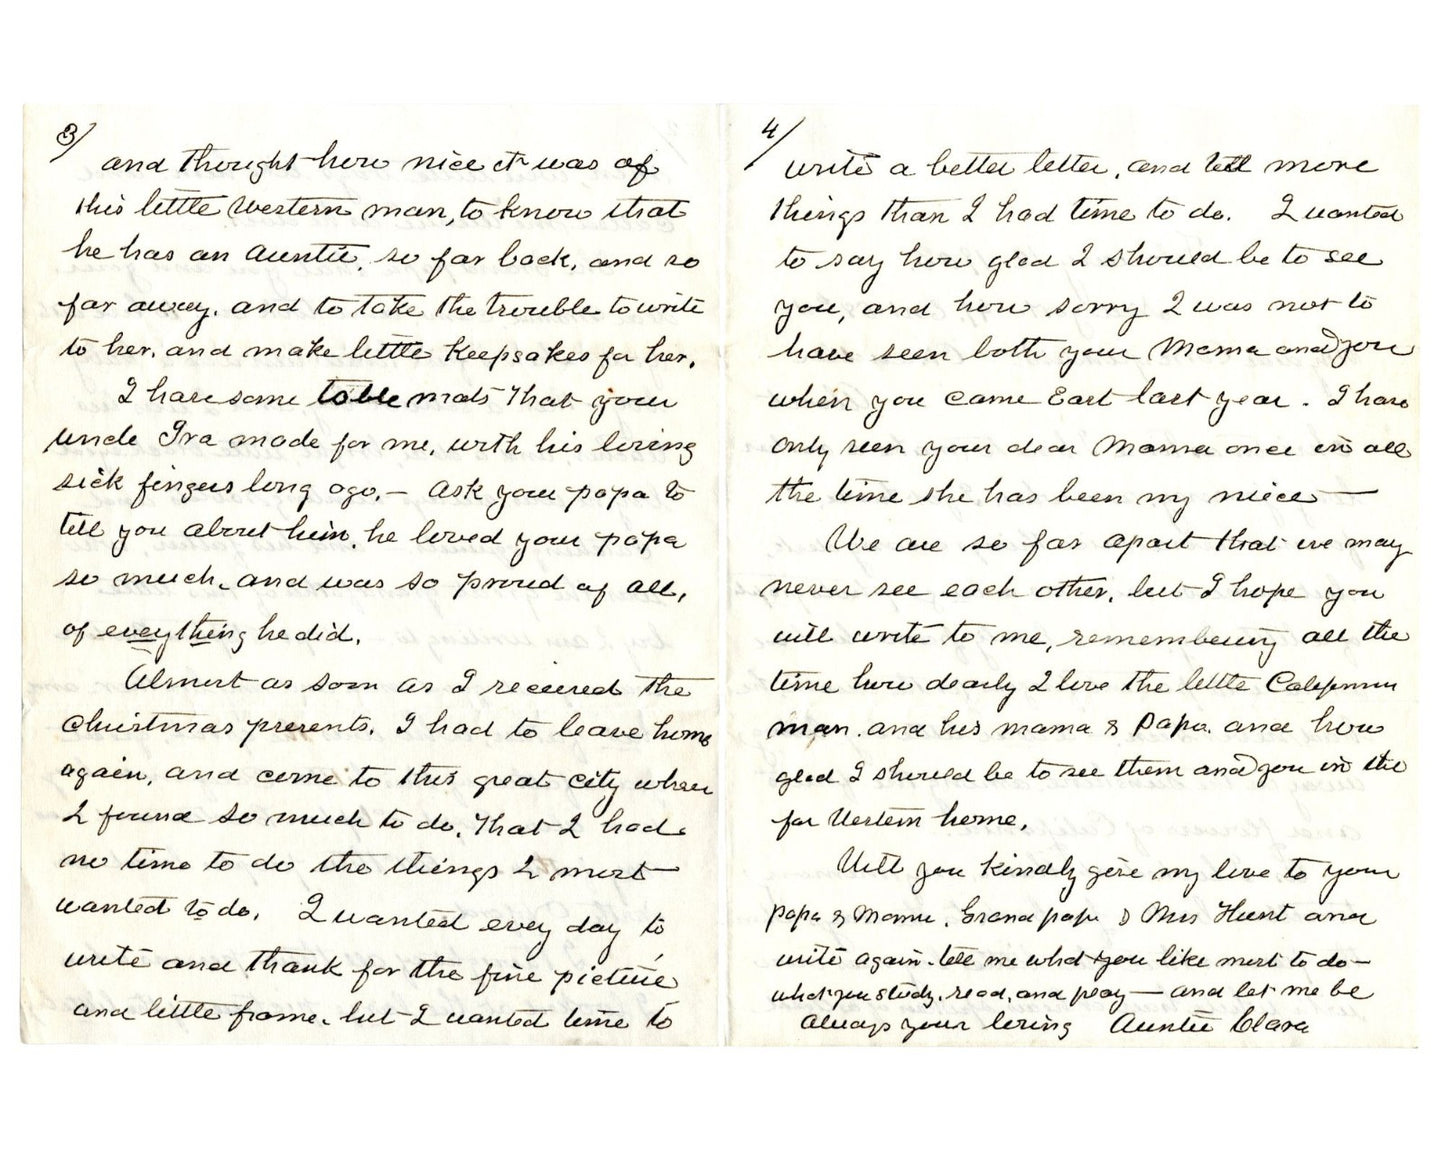 3/
and thought how nice it was of
this little Western man, to know that
he has an Auntie, so far back, and so
far away, and to take the trouble to write
to her, and make little keepsakes for her.
I have some table mats that your
uncle Ira made for me, with his loving
sick fingers long ago. — Ask your papa to
tell you about him, he loved your papa
so much, and was so proud of all,
of everything he did.
Almost as soon as I received the
Christmas presents, I had to leave home
again, and come to this great city where
I found so much to do, that I had
no time to do the things I most
wanted to do. I wanted every day to
write and thank for the fine picture
and little frame, but I wanted time to
4/
write a better letter, and tell more
things than I had time to do. I wanted
to say how glad I should be to see
you, and how sorry I was not to
have seen both your Mama and you
when you came East last year. I have
only seen your dear Mama once in all
the time she has been my niece —
We are so far apart that we may
never see each other, but I hope you
will write to me, remembering all the
time how dearly I love the little California
man, and his mama & papa, and how
glad I should be to see them and you in the
far Western home.
Will you kindly give my love to your
papa & Mama, Grandpapa & Mrs Hunt and
write again. tell me what you like most to do —
what you study, read, and play — and let me be
always your loving Auntie Clara